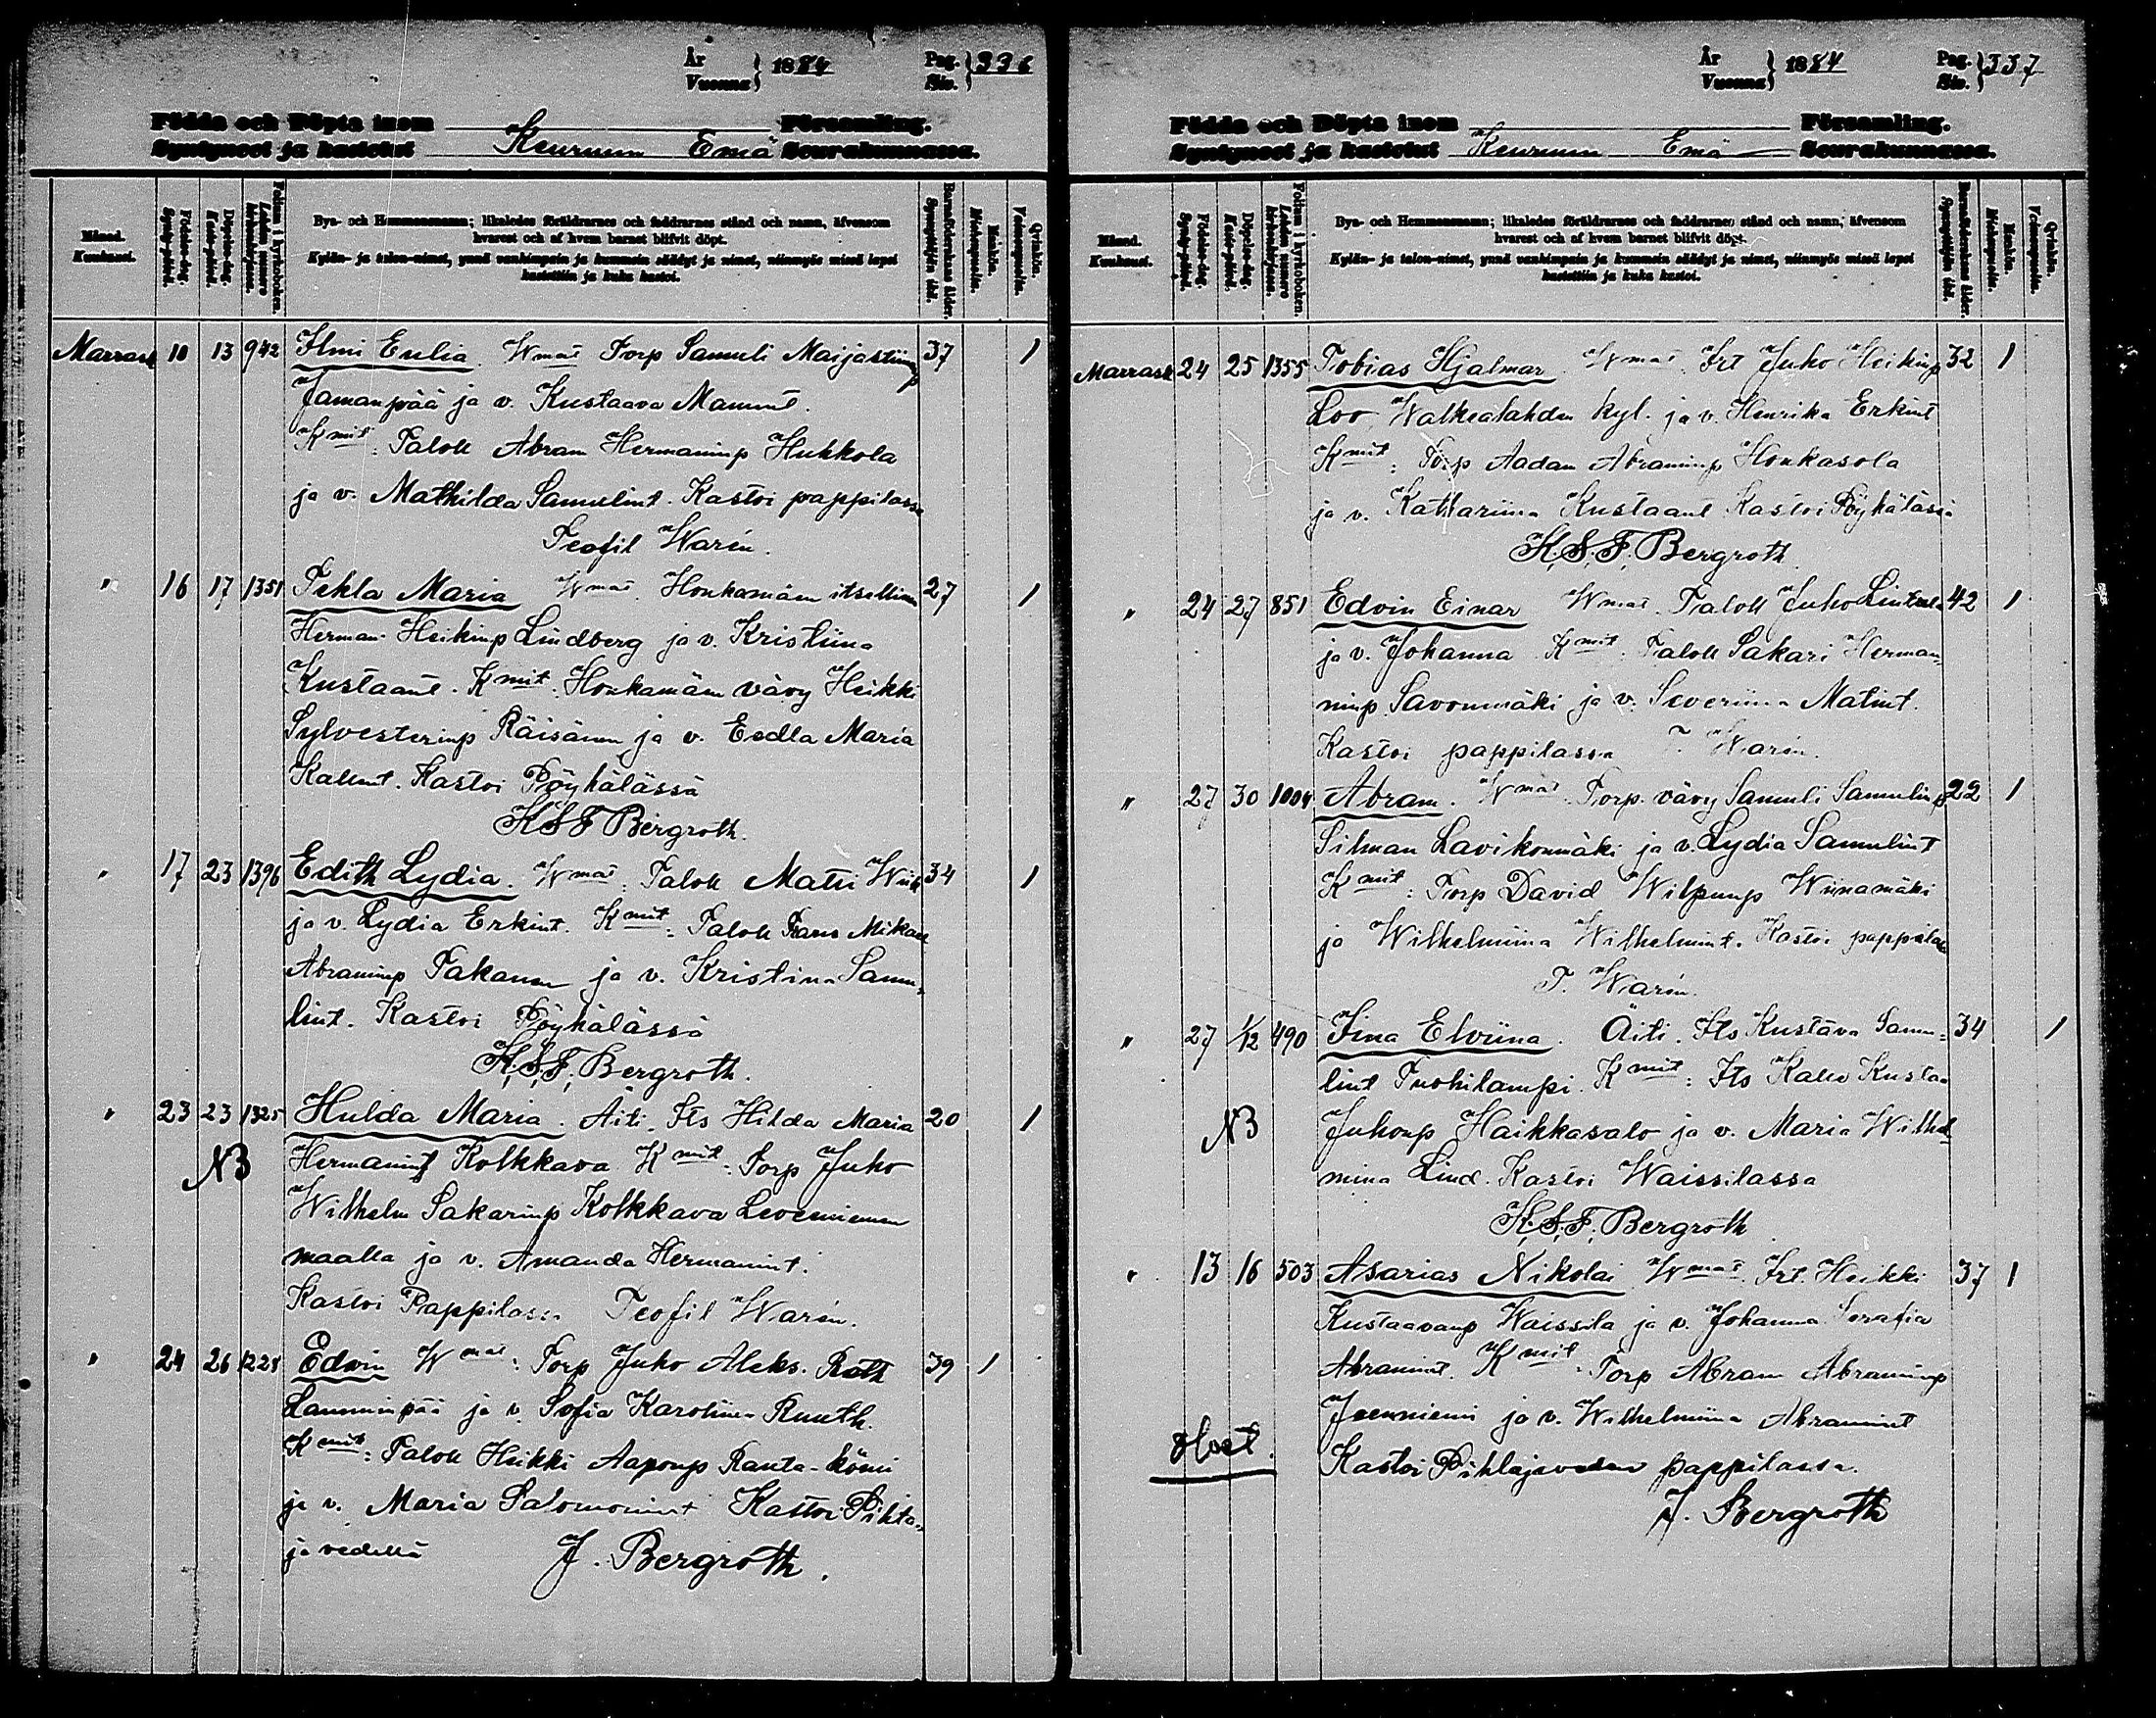 År
Vuonna } 1884 Pag.
Siv. } 336
Födda och Döpta inom Församling.
Syntyneet ja kastetut Keuruun Emä Seurakunnassa.
Månad.
Kuukausi.
Födelse-dag.
Synty-päivä.
Döpelse-dag.
Kaste-päivä.
Folium i kyrkoboken.
Lehden numero kirkonkirjassa.
Bys- och Hemmansnamn; likaledes föräldrarnes och faddrarnes stånd och namn, äfvensom
hvarest och af hvem barnet blifvit döpt.
Kylän- ja talon-nimet, ynnä vanhimpain ja kummein säädyt ja nimet, niinmyös missä lapsi
kastettiin ja kuka kastoi.
Barnaföderskans ålder.
Synnyttäjän ikä.
Mankön.
Miehenpuolia.
Qvinkön.
Vaimonpuolia.
Marrask 10 13 942 Ilmi Eulia Wmat Torp Samuli Maijastiinp 37 1
Jamanpää ja v. Kustaava Mamint.
Kmit: Talok Abram Hermaninp Hukkola
ja v. Mathilda Samulint. Kastoi pappilassa
Teofil Warén.
" 16 17 1351 Tekla Maria Wmat. Honkamäen itsellinen 27 1
Herman Heikinp Lindberg ja v. Kristiina
Kustaant. Kmit. Honkamäen vävy Heikki
Sylvesterinp Räisänen ja v. Eedla Maria
Kallent. Kastoi Pöyhälässä
KSF Bergroth.
" 17 23 1396 Edith Lydia. Wmat: Talok Matti Wiik 34 1
ja v. Lydia Erkint. Kmit: Talok Frans Mikael
Abraminp Takanen ja v. Kristina Samu-
lint. Kastoi Pöyhälässä
K.S.F. Bergroth.
" 23 23 1325 Hulda Maria. Äiti. Its Hilda Maria 20 1
NB Hermanint Kolkkava Kmit: Torp Juho
Wilhelm Sakarinp Kolkkava
maalla ja v. Amanda Hermanint.
Kastoi Pappilassa Teofil Warén.
" 24 26 1228 Edvin Wmat: Torp Juho Aleks. Roth 39 1
Lamminpää ja v. Sofia Karoliina Ruuth.
Kmit: Talok Heikki Aaponp Ranta-könni
ja v. Maria Salomonint Kastoi Pihla-
javedellä J. Bergroth.
År
Vuonna } 1884 Pag.
Siv. } 337
Födda och Döpta inom Församling.
Syntyneet ja kastetut Keuruun Emä Seurakunnassa.
Månad.
Kuukausi.
Födelse-dag.
Synty-päivä.
Döpelse-dag.
Kaste-päivä.
Folium i kyrkoboken.
Lehden numero kirkonkirjassa.
Bys- och Hemmansnamn; likaledes föräldrarnes och faddrarnes stånd och namn, äfvensom
hvarest och af hvem barnet blifvit döpt.
Kylän- ja talon-nimet, ynnä vanhimpain ja kummein säädyt ja nimet, niinmyös missä lapsi
kastettiin ja kuka kastoi.
Barnaföderskans ålder.
Synnyttäjän ikä.
Mankön.
Miehenpuolia.
Qvinkön.
Vaimonpuolia.
Marrask 24 25 1355 Tobias Hjalmar Wmat. Irt Juho Heikinp 32 1
Loo Walkealahden kyl. ja v. Henrika Erkint
Kmit: Torp Aadam Abraminp Honkasola
ja v. Kathariina Kustaant Kastoi Pöyhälässä
K.S.F. Bergroth.
" 24 27 851 Edvin Einar Wmat. Talok Juho Lintula 42 1
ja v. Johanna Kmit: Talok Sakari Herman-
ninp Savonmäki ja v. Severiina Matint.
Kastoi pappilassa T. Warén.
" 27 30 1004 Abram. Wmat. Torp. vävy Samuli Samulinp 22 1
Silman Lavikonmäki ja v. Lydia Samulint
Kmit: Torp David Wilpunp Wiinamäki
ja Wilhelmiina Wilhelmint. Kastoi pappilas
T. Warén.
" 27 1/12 490 Iina Elviina. Äiti. Its Kustava Samu- 34 1
lint Tuohilampi. Kmit: Its Kalle Kusta-
NB Juhonp Haikkasalo ja v. Maria Wilhel
mina Lind. Kastoi Waissilassa
K.S.F. Bergroth
" 13 16 503 Asarias Nikolai Wmat. Irt. Heikki 37 1
Kustaavanp Waissila ja v. Johanna Serafia
Abramint. Kmit: Torp Abram Abraminp
Jeenniemi ja v. Wilhelmiina Abramint
Kastoi Pihlajaveden pappilassa.
J. Bergroth